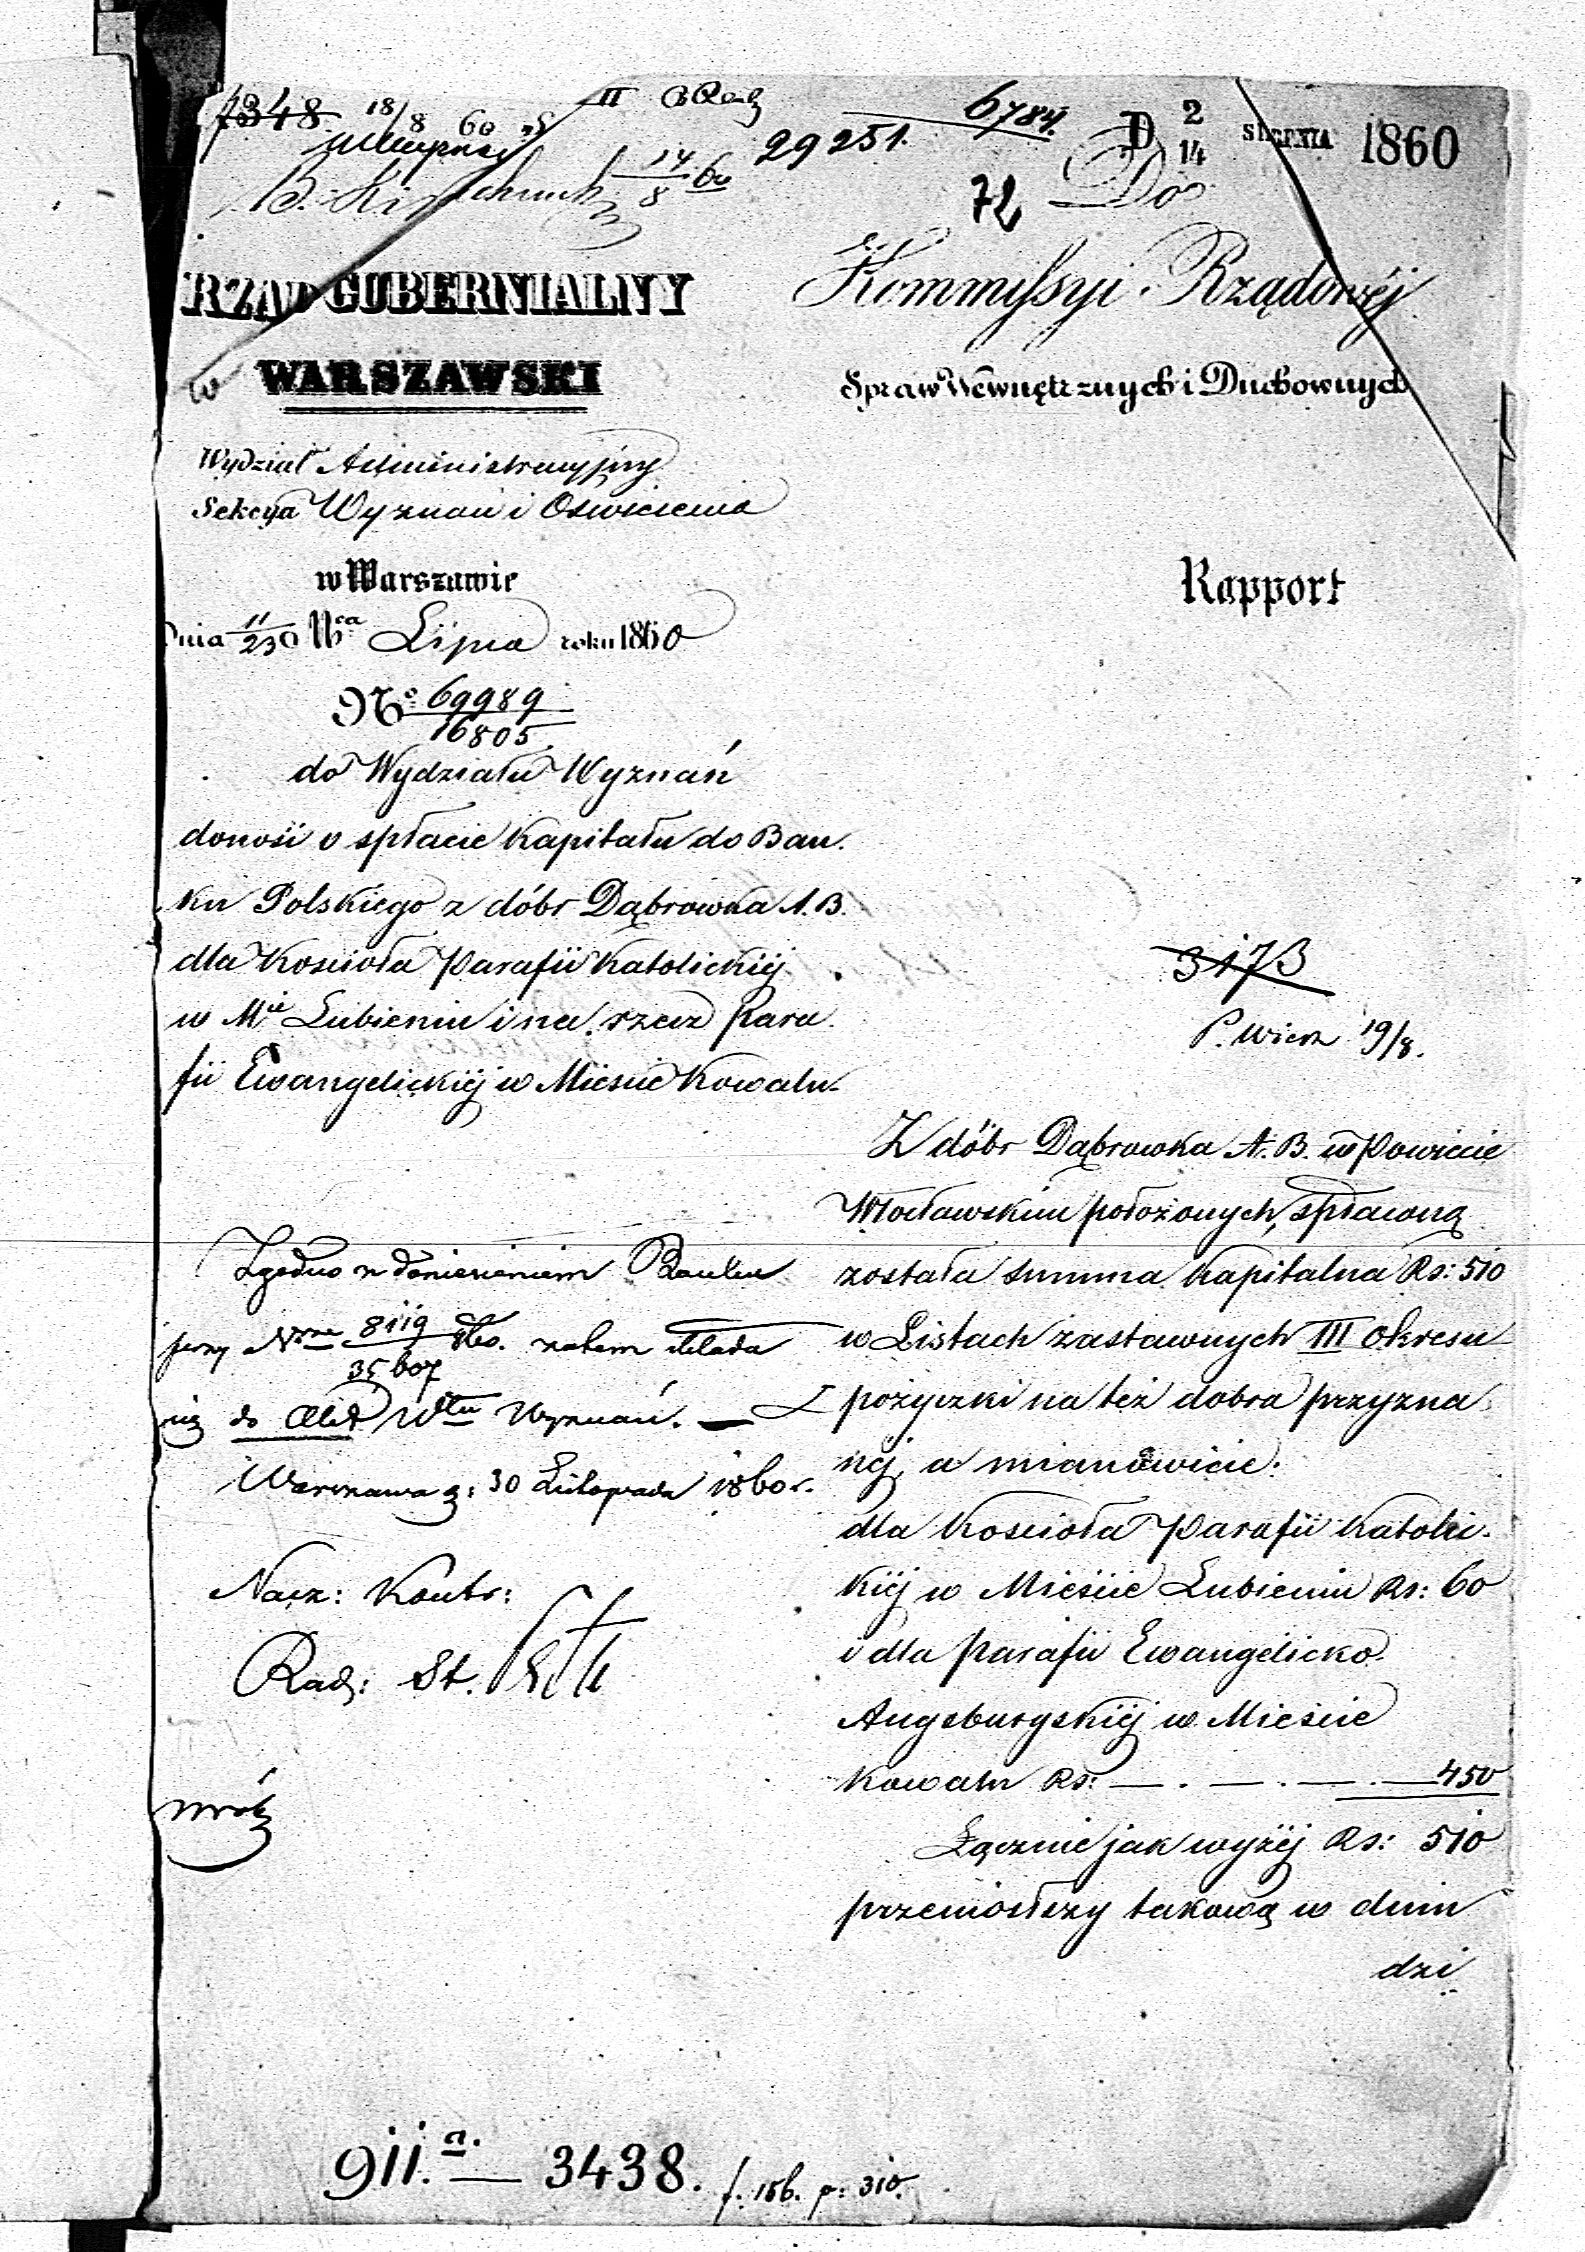 7348. 18/8 60
II
29251.
6784.
D 2/14 SIERPNIA 1860
14/8 60
72
Do
RZĄD GUBERNIALNY
WARSZAWSKI
Wydział Administracyjny
Sekcya Wyznań i Oświecenia
w Warszawie
Dnia 11/23 Mca Lipca roku 1860
No 69989/16805
do Wydziału Wyznań
donosi o spłacie kapitału do Ban-
ku Polskiego z dóbr Dąbrowka A. B.
dla Kościoła Parafii Katolickiej
w Mie Lubieniu i na rzecz Para
fii Ewangelickiej w Mieście Kowalu.
Zgodno z doniesieniem Banku
przy Nrze 8119/35607 zatem składa
się do Akt Włu Wyznań.
Warszawa d: 30 Listopada 1860 r.
Nacz: Kontr:
Rad: St.
Mróz
Kommissyi Rządowéj
Spraw Wewnętrznych i Duchownych
Rapport
3173
P. Wierz 19/8.
Z dóbr Dąbrowka A. B. w Powiecie
Włocławskim położonych, spłaconą
została summa kapitalna Rs: 510
w Listach zastawnych III okresu
pożyczki na też dobra przyzna
nej, a mianowicie:
dla Kościoła Parafii Katolic-
kiej w Mieście Lubieniu Rs: 60
i dla Parafii Ewangelicko
Augsburgskiej w Mieście
Kowalu Rs: — . — . — . — 450
Łącznie jak wyżej Rs: 510
przeniosłszy takową w dniu
dzi
911.a. — 3438. f. 156. p: 310.